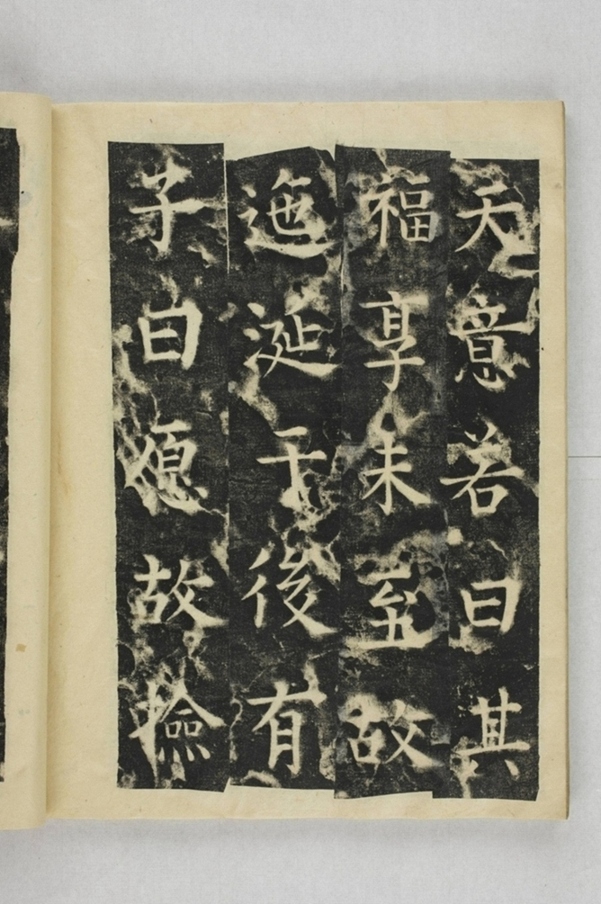 天意若曰其
福享未至故
迤涎于後有
子曰愿故檢